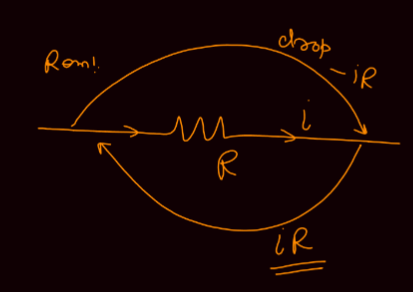 Rem!
drop
- iR
i
R
iR